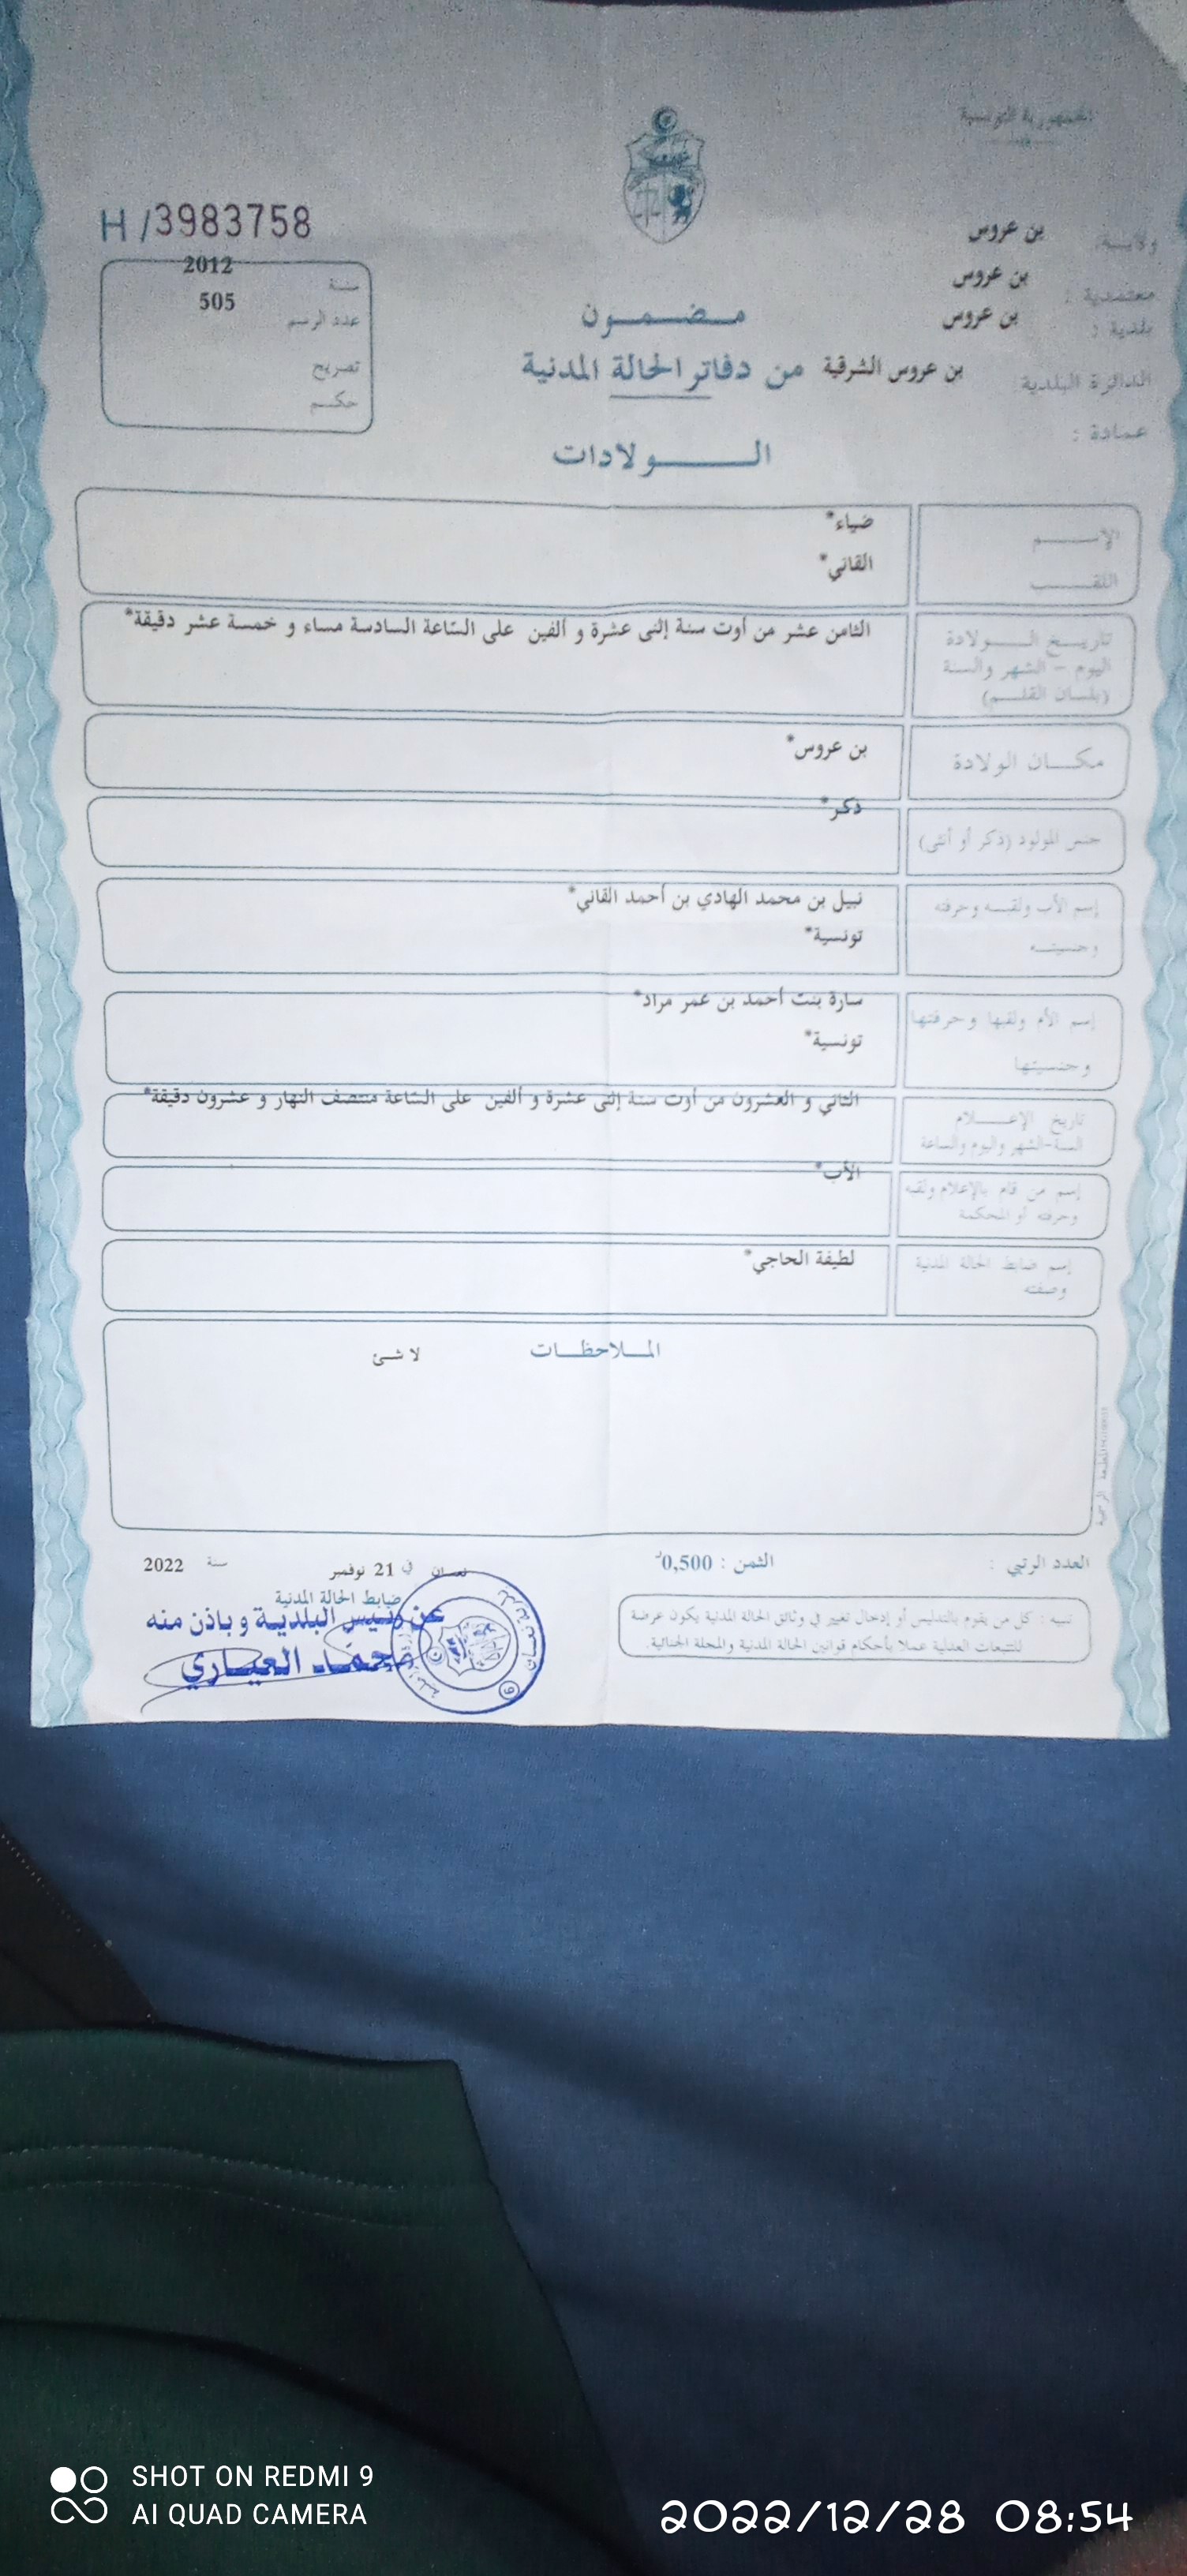 الجمهورية التونسية
H /3983758
ولاية: بن عروس
معتمدية : بن عروس
بلدية : بن عروس
الدائرة البلدية: بن عروس الشرقية
عمادة :
سنة 2012
عدد الرسم 505
تصريح
حكم
مضمون
من دفاتر الحالة المدنية
الولادات
الإسم ضياء*
اللقب القاني*
تاريخ الولادة
اليوم - الشهر والسنة
(بلسان القلم)
الثامن عشر من أوت سنة إثنى عشرة و ألفين على السّاعة السادسة مساء و خمسة عشر دقيقة*
مكان الولادة بن عروس*
جنس المولود (ذكر أو أنثى) ذكر*
إسم الأب ولقبه وحرفته نبيل بن محمد الهادي بن أحمد القاني*
وجنسيته تونسية*
إسم الأم ولقبها وحرفتها سارة بنت أحمد بن عمر مراد*
وجنسيتها تونسية*
تاريخ الإعلام
السنة-الشهر واليوم والساعة
الثاني و العشرون من أوت سنة إثنى عشرة و ألفين على السّاعة منتصف النهار و عشرون دقيقة*
إسم من قام بالإعلام ولقبه
وحرفته أو المحكمة
الأب*
إسم ضابط الحالة المدنية
وصفته
لطيفة الحاجي*
الملاحظات
لا شئ
المطبعة الرسمية
العدد الرتبي :
الثمن : 0,500د
نعسان في 21 نوفمبر سنة 2022
ضابط الحالة المدنية
عن رئيس البلدية وباذن منه
محمّد العياري
تنبيه : كل من يقوم بالتدليس أو إدخال تغيير في وثائق الحالة المدنية يكون عرضة
للتتبعات العدلية عملا بأحكام قوانين الحالة المدنية والمجلة الجنائية.
SHOT ON REDMI 9
AI QUAD CAMERA
2022/12/28 08:54